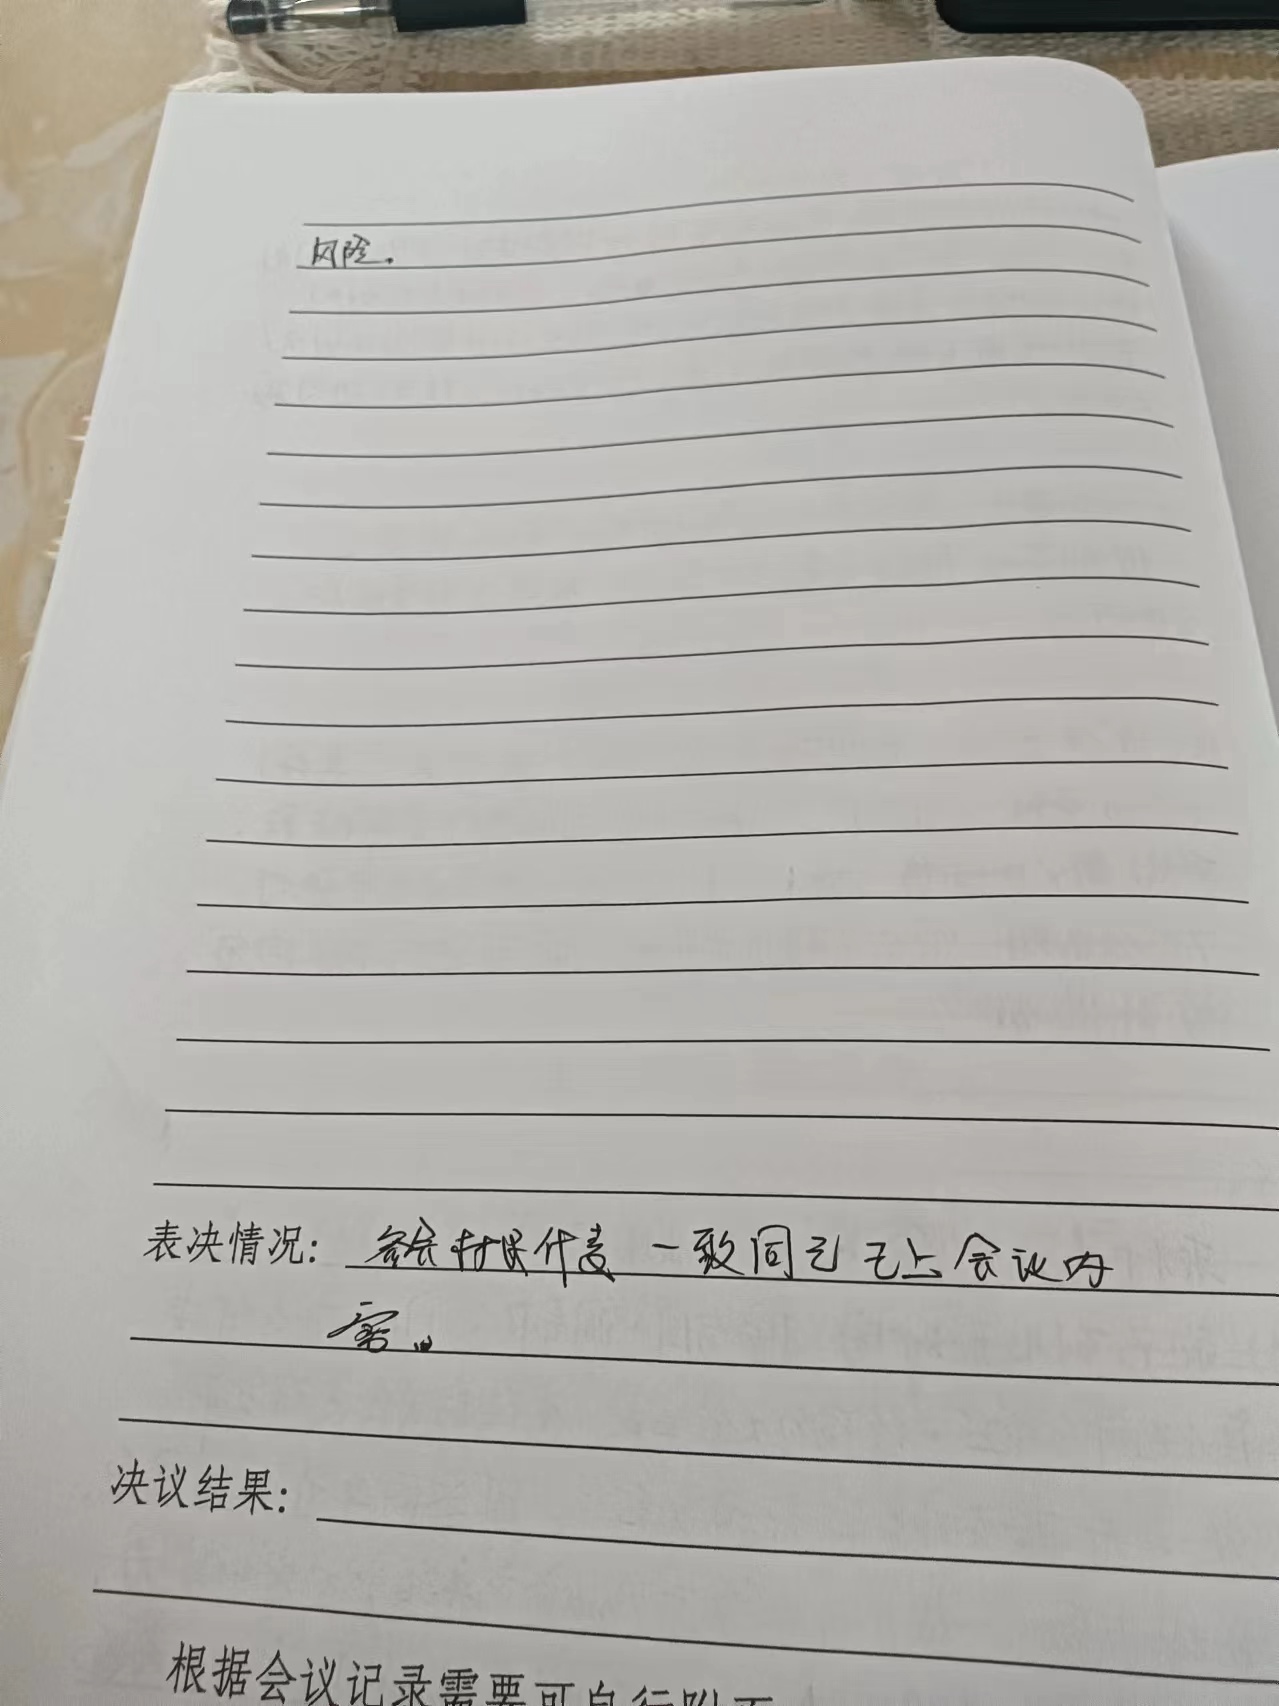 风险.
表决情况: 参会村民代表一致同意以上会议内
容。
决议结果:
根据会议记录需要可自行附页